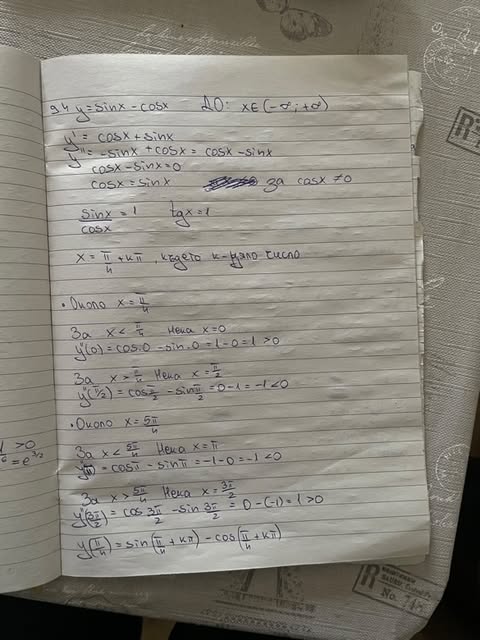 94 y=sinx - cosx ДО: x∈(-∞;+∞)
y' = cosx+sinx
y'' = -sinx+cosx = cosx-sinx
cosx-sinx=0
cosx=sinx за cosx ≠0
sinx/cosx = 1 tgx=1
x = π/4 + kπ, където k-цяло число
• Около x=π/4
За x < π/4 Нека x=0
y''(0) = cos0 - sin0 = 1-0=1 >0
За x > π/4 Нека x=π/2
y''(π/2) = cosπ/2 - sinπ/2 = 0-1=-1<0
• Около x=5π/4
За x < 5π/4 Нека x=π
y''(π) = cosπ - sinπ = -1-0=-1<0
1 >0
= e^3/2
За x > 5π/4 Нека x=3π/2
y''(3π/2) = cos 3π/2 - sin 3π/2 = 0-(-1)=1>0
y(π/4) = sin(π/4+kπ) - cos(π/4+kπ)
R
R
No.